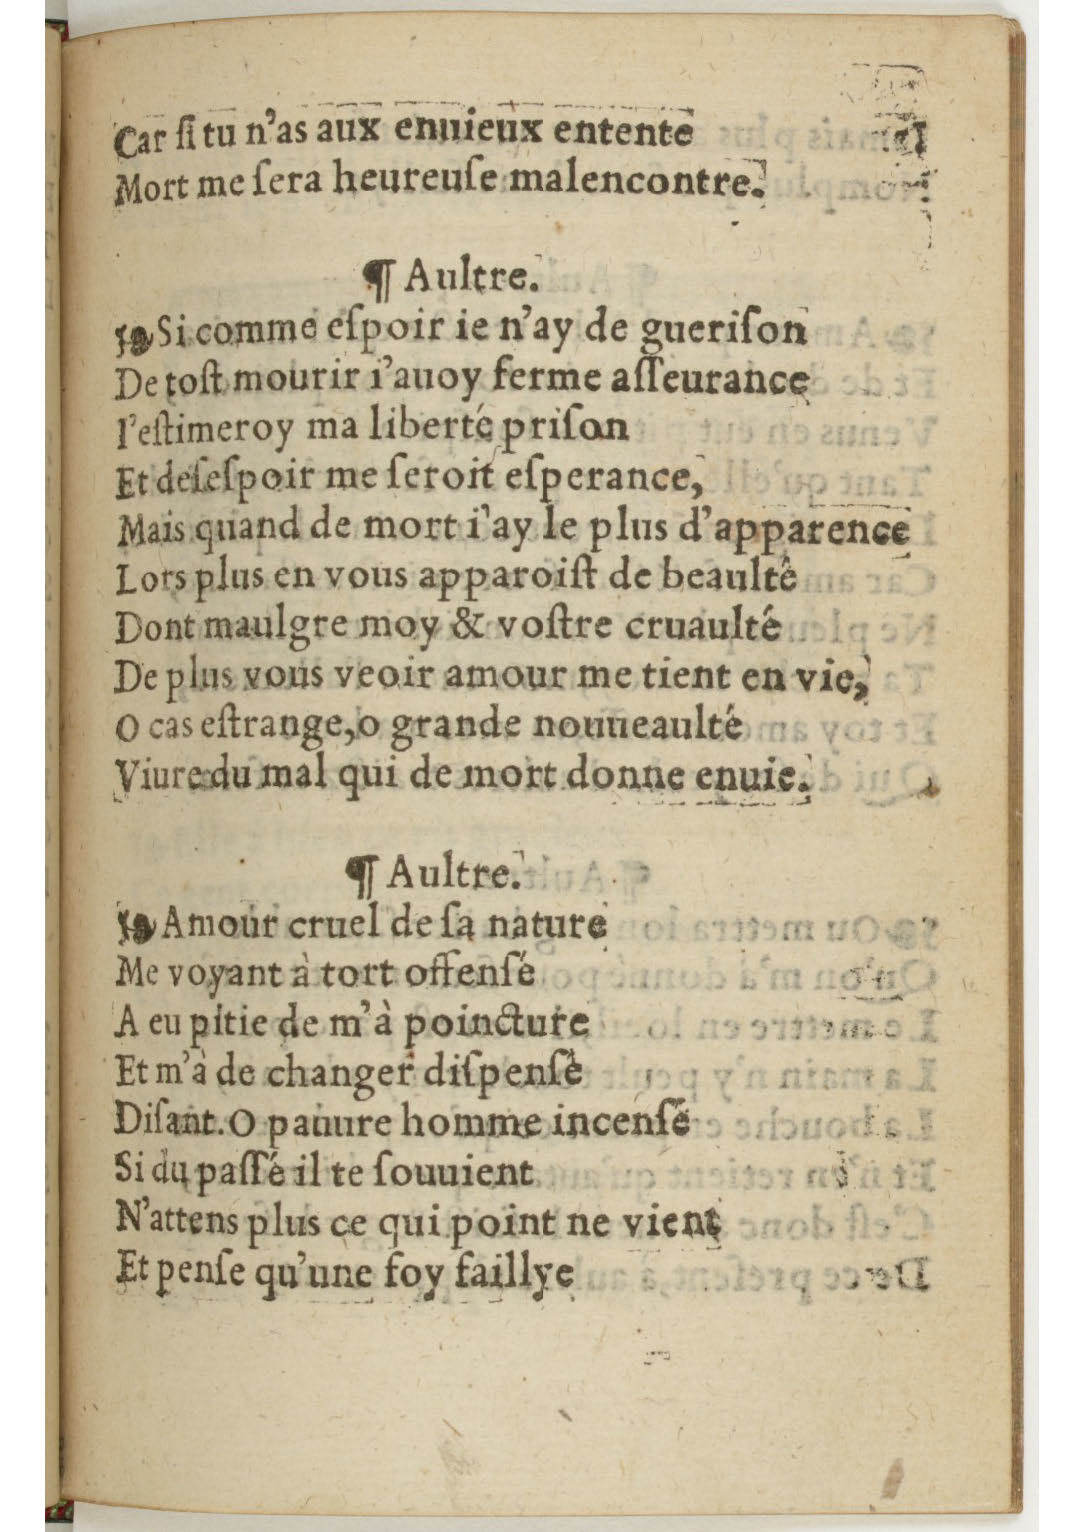 Car ſi tu n'as aux enuieux entente
Mort me ſera heureuſe malencontre.
¶ Aultre.
Si comme eſpoir ie n'ay de gueriſon
De toſt mourir i'auoy ferme aſſeurance
I'eſtimeroy ma liberté priſon
Et deſeſpoir me ſeroit eſperance,
Mais quand de mort i'ay le plus d'apparence
Lors plus en vous apparoiſt de beaulté
Dont maulgre moy & voſtre cruaulté
De plus vous veoir amour me tient en vie,
O cas eſtrange, o grande nouueaulté
Viure du mal qui de mort donne enuie.
¶ Aultre.
Amour cruel de ſa nature
Me voyant à tort offenſé
A eu pitie de m'à poincture
Et m'à de changer diſpenſé
Diſant. O pauure homme incenſé
Si du paſſé il te ſouuient
N'attens plus ce qui point ne vient
Et penſe qu'une foy faillye